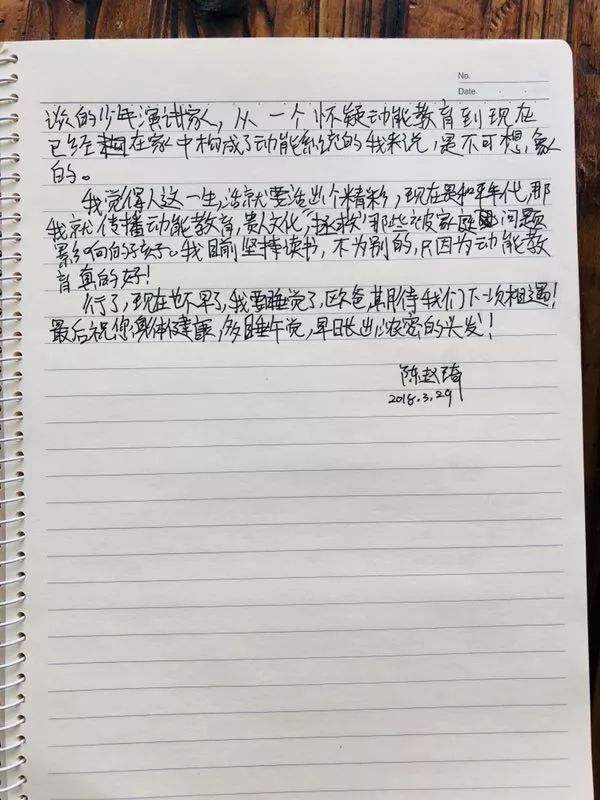 No.
Date.
谈的少年演讲家人,从一个怀疑动能教育到现在
已经在家中构成了动能系统的我来说,是不可想象
的。
我觉得人这一生,活就要活出个精彩,现在是和平年代,那
我就传播动能教育,贵人文化,“拯救”那些被家庭问题
影响的孩子。我目前坚持读书,不为别的,只因为动能教
育真的好!
行了,现在也不早了,我要睡觉了,欧爸,期待我们下次相遇!
最后祝您身体健康,多睡午觉,早日长出浓密的头发!
陈赵琦
2018.3.29